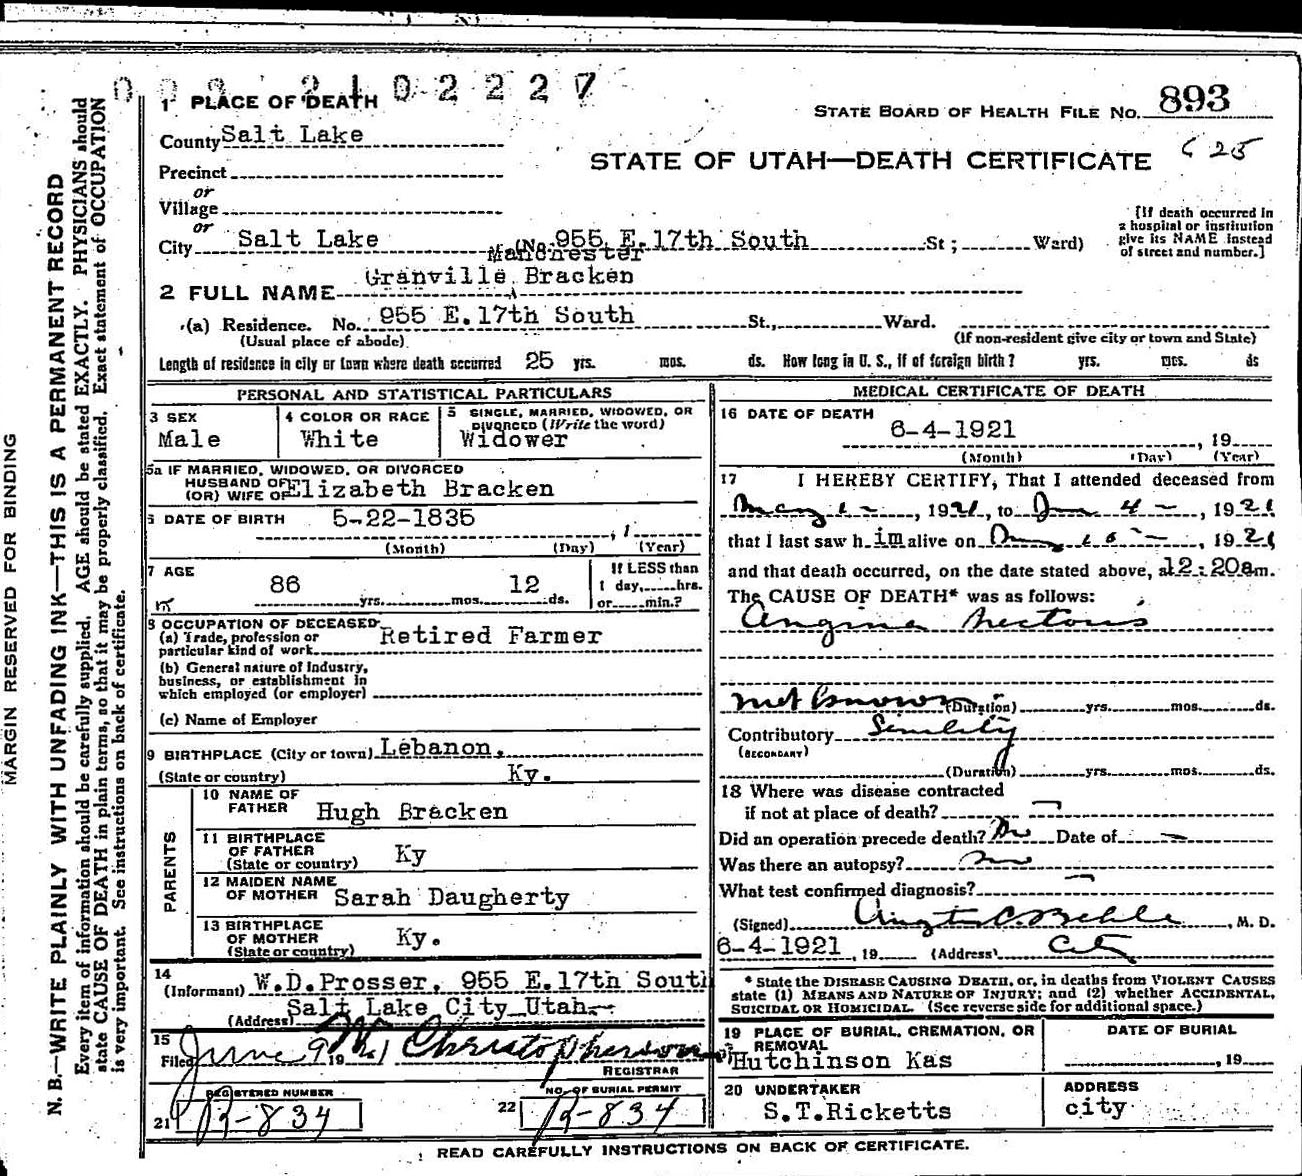 MARGIN RESERVED FOR BINDING
N. B.—WRITE PLAINLY WITH UNFADING INK—THIS IS A PERMANENT RECORD
Every item of information should be carefully supplied. AGE should be stated EXACTLY. PHYSICIANS should
state CAUSE OF DEATH in plain terms, so that it may be properly classified. Exact statement of OCCUPATION
is very important. See instructions on back of certificate.
2102227
1 PLACE OF DEATH
STATE BOARD OF HEALTH FILE NO. 893
County Salt Lake
STATE OF UTAH—DEATH CERTIFICATE 625
Precinct
or
Village
or
City Salt Lake (No. 955 E. 17th South St; Ward)
[If death occurred in
a hospital or institution
give its NAME instead
of street and number.]
Manchester
2 FULL NAME Granville Bracken
(a) Residence. No. 955 E. 17th South St., Ward.
(Usual place of abode) (If non-resident give city or town and State)
Length of residence in city or town where death occurred 25 yrs. mos. ds. How long in U. S., if of foreign birth? yrs. mos. ds
PERSONAL AND STATISTICAL PARTICULARS
3 SEX
Male
4 COLOR OR RACE
White
5 SINGLE, MARRIED, WIDOWED, OR
DIVORCED (Write the word)
Widower
5a IF MARRIED, WIDOWED, OR DIVORCED
HUSBAND OF
(OR) WIFE OF Elizabeth Bracken
6 DATE OF BIRTH 5-22-1835
(Month) (Day) (Year)
7 AGE
86 yrs. mos. 12 ds.
If LESS than
1 day, hrs.
or min.?
8 OCCUPATION OF DECEASED
(a) Trade, profession or
particular kind of work Retired Farmer
(b) General nature of Industry,
business, or establishment in
which employed (or employer)
(c) Name of Employer
9 BIRTHPLACE (City or town) Lebanon.
(State or country) Ky.
PARENTS
10 NAME OF
FATHER Hugh Bracken
11 BIRTHPLACE
OF FATHER
(State or country) Ky
12 MAIDEN NAME
OF MOTHER Sarah Daugherty
13 BIRTHPLACE
OF MOTHER
(State or country) Ky.
14
(Informant) W.D.Prosser, 955 E.17th South
(Address) Salt Lake City Utah
15
Filed June 9 19 Christopherson
REGISTRAR
REGISTERED NUMBER
21 R-834
NO. OF BURIAL PERMIT
22 R-834
MEDICAL CERTIFICATE OF DEATH
16 DATE OF DEATH
6-4-1921 , 19
(Month) (Day) (Year)
17 I HEREBY CERTIFY, That I attended deceased from
May 1 , 1921, to June 4 , 1921
that I last saw h im alive on , 1921
and that death occurred, on the date stated above, at 12:20am.
The CAUSE OF DEATH* was as follows:
Angina Pectoris
not known (Duration) yrs. mos. ds.
Contributory Senility
(SECONDARY)
(Duration) yrs. mos. ds.
18 Where was disease contracted
if not at place of death?
Did an operation precede death? No Date of
Was there an autopsy? no
What test confirmed diagnosis?
(Signed) C. Behle , M. D.
6-4-1921, 19 (Address) City
* State the DISEASE CAUSING DEATH, or, in deaths from VIOLENT CAUSES
state (1) MEANS AND NATURE OF INJURY; and (2) whether ACCIDENTAL,
SUICIDAL OR HOMICIDAL. (See reverse side for additional space.)
19 PLACE OF BURIAL, CREMATION, OR
REMOVAL
Hutchinson Kas
DATE OF BURIAL
, 19
20 UNDERTAKER
S.T.Ricketts
ADDRESS
city
READ CAREFULLY INSTRUCTIONS ON BACK OF CERTIFICATE.